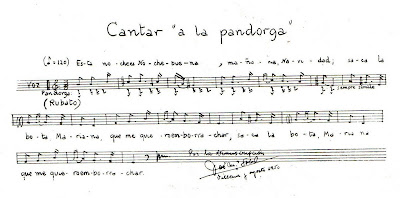 Cantar "a la pandorga"
(♩=120) Es-ta no-chees No-che-bue-na , ma-ña-na, Na-vi-dad; sa-ca la
VOZ
Pandorga siempre simile
(Rubato)
bo-ta, Ma-ria-na, que me quie-roembo-rra-char, sa-ca la bo-ta, Ma-ria na
que me quie-roem-bo-rra-char.
Por la